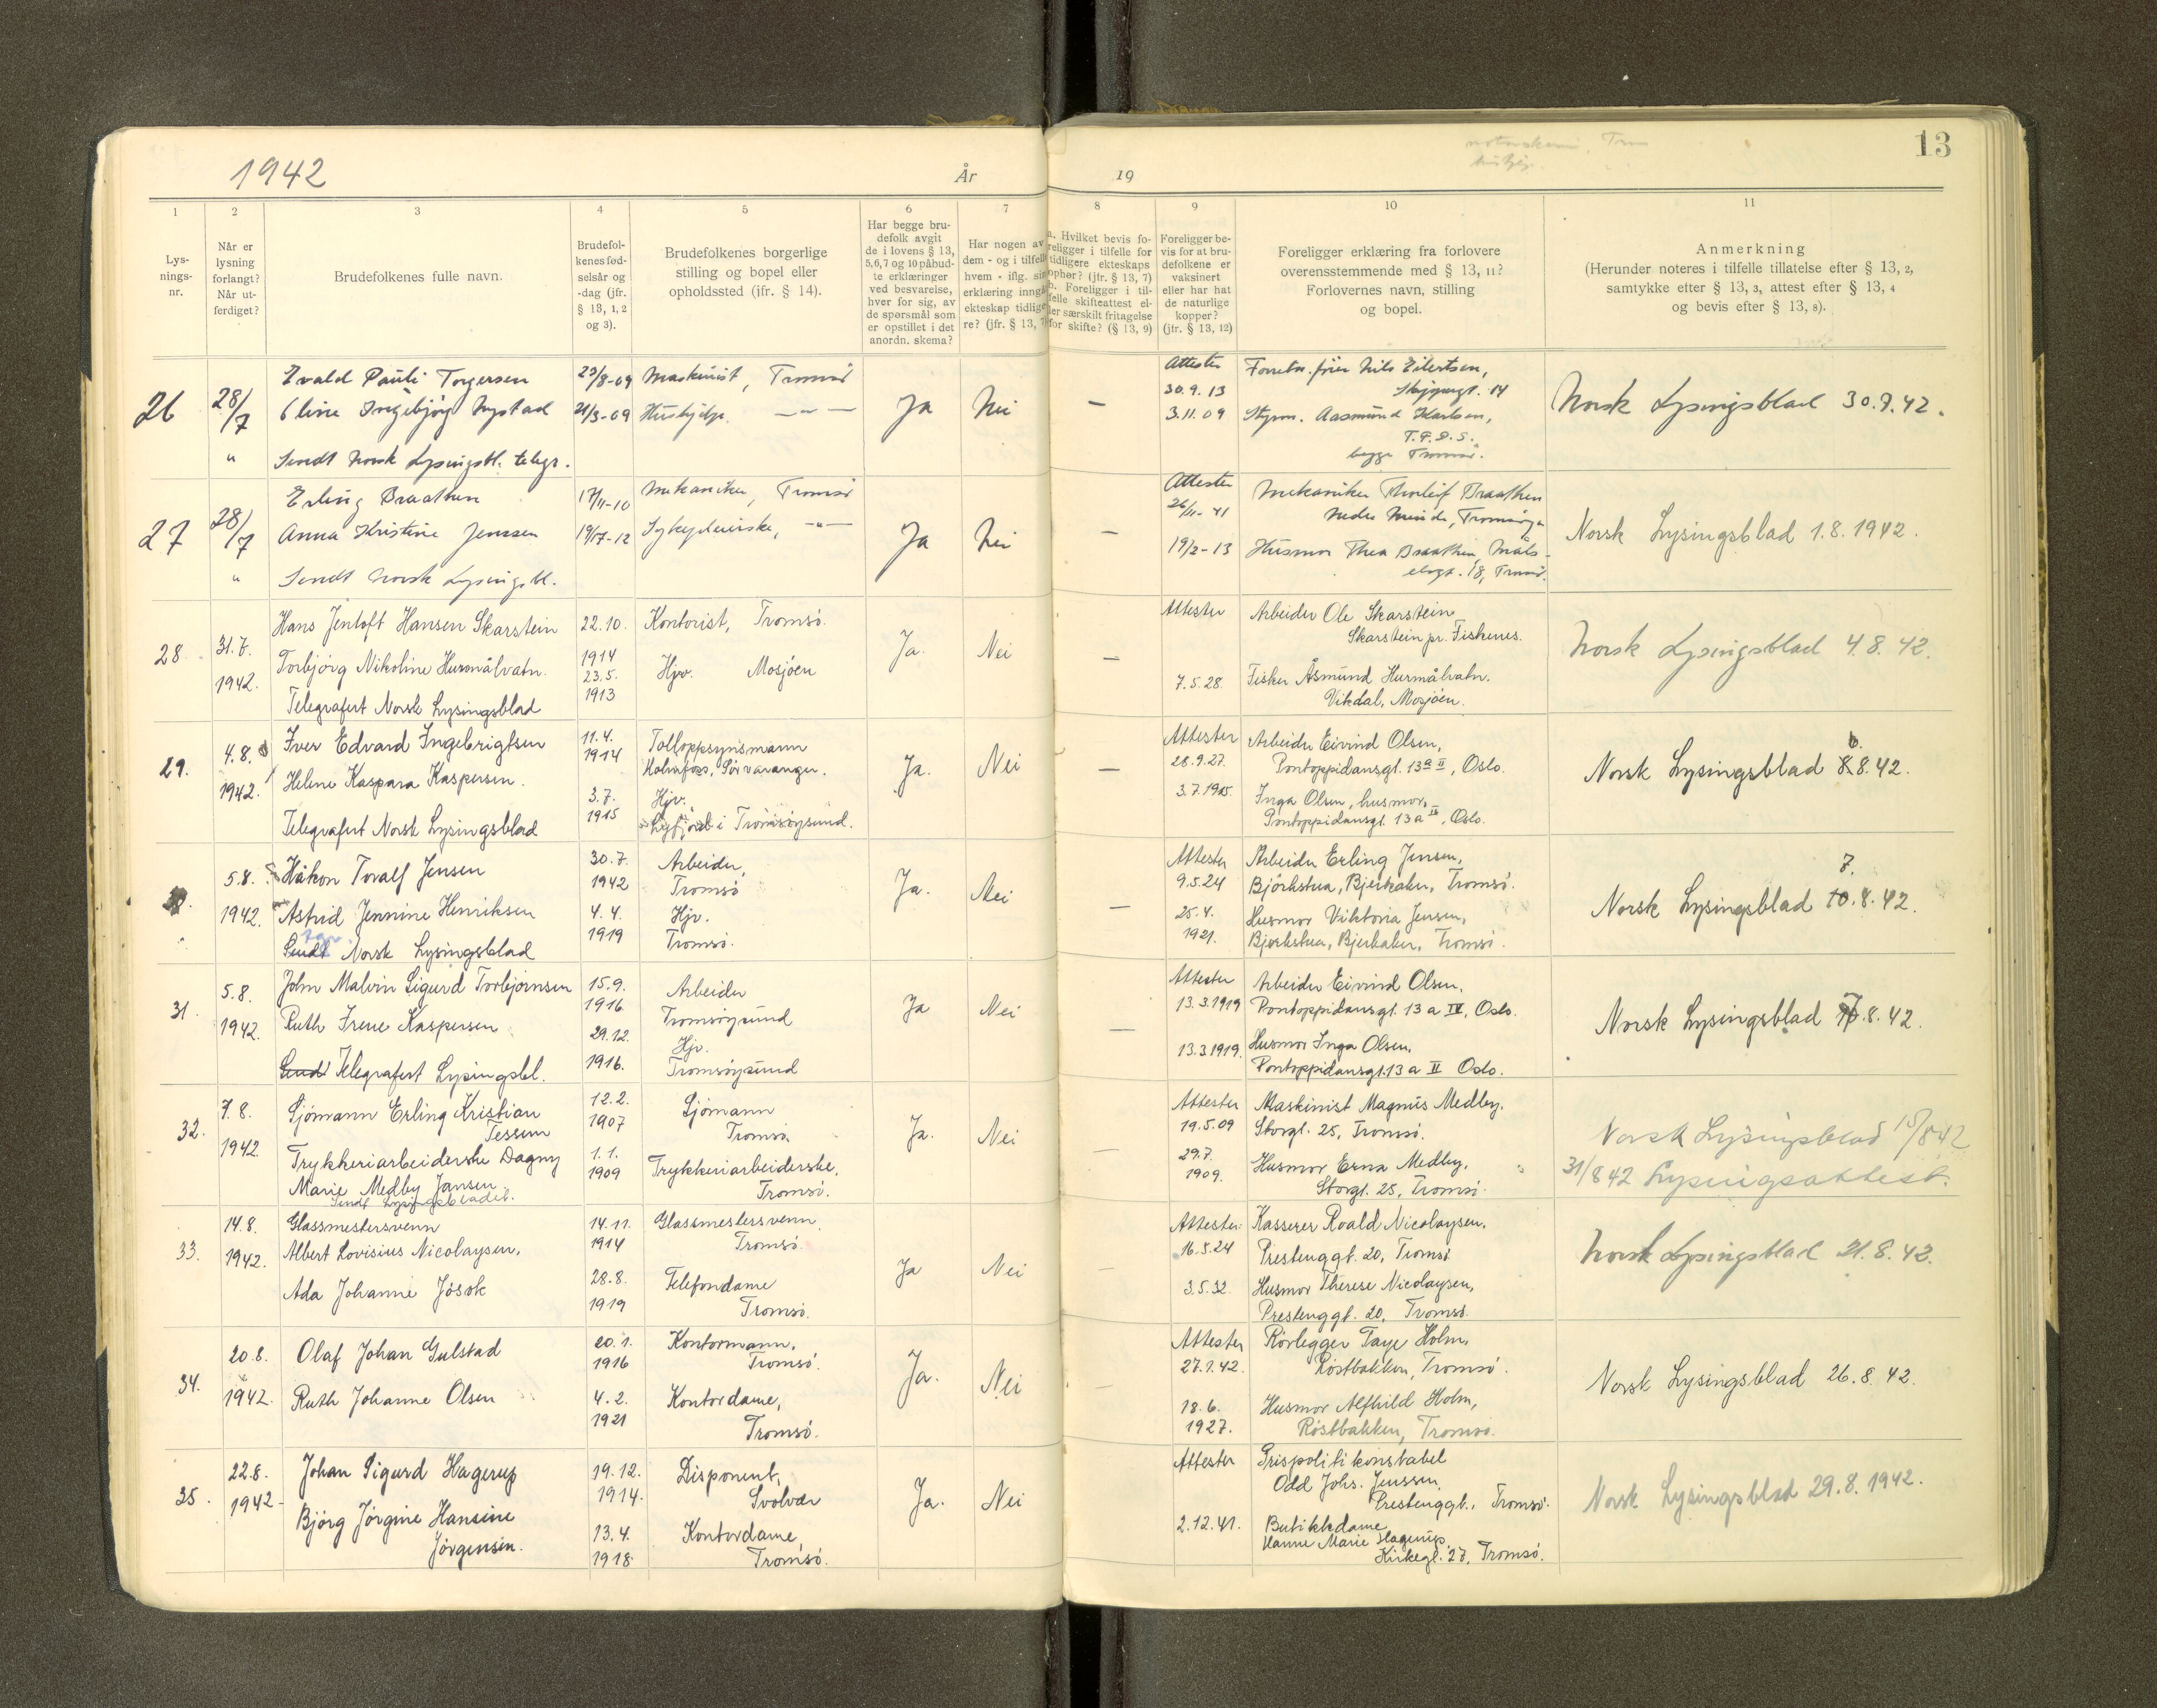 1942
År
19
13
1
2
3
4
5
6
7
8
9
10
11
Lys-
nings-
nr.
Når er
lysning
forlangt?
Når ut-
ferdiget?
Brudefolkenes fulle navn.
Brudefol-
kenes fød-
selsår og
-dag (jfr.
§ 13, 1, 2
og 3).
Brudefolkenes borgerlige
stilling og bopel eller
opholdssted (jfr. § 14).
Har begge bru-
defolk avgit
de i lovens § 13,
5,6,7 og 10 påbud-
te erklæringer
ved besvarelse,
hver for sig, av
de spørsmål som
er opstillet i det
anordn. skema?
Har nogen av
dem - og i tilfelle
hvem - iflg. sin
erklæring inngå
ekteskap tidlige-
re? (jfr. § 13, 7)
a. Hvilket bevis fo-
religger i tilfelle for
tidligere ekteskaps
ophør? (jfr. § 13, 7)
b. Foreligger i til-
felle skifteattest el-
ler særskilt fritagelse
for skifte? (§ 13, 9)
Foreligger be-
vis for at bru-
defolkene er
vaksinert
eller har hat
de naturlige
kopper?
(jfr. § 13, 12)
Foreligger erklæring fra forlovere
overensstemmende med § 13, 11?
Forlovernes navn, stilling
og bopel.
Anmerkning
(Herunder noteres i tilfelle tillatelse efter § 13, 2,
samtykke efter § 13, 3, attest efter § 13, 4
og bevis efter § 13, 8).
26
28/7
Evald Pauli Torgersen
23/8-09
Maskinist, Tromsö
Oline Ingebjörg Nystad
21/3-09
Hushjelp. — " —
Ja
Nei
—
" Sendt Norsk Lysingsbl. telegr.
Attester
30.9.13
3.11.09
Forretn.förer Nils Eilertsen,
Skippergt. 14
Styrm. Aasmund Karlsen,
T.F.D.S.
begge Tromsö.
Norsk Lysingsblad 30.7.42.
27
28/7
Erling Braathen
17/11-10
Mekaniker, Tromsö
Anna Kristine Jenssen
19/7-12
Sykepleierske, — " —
Ja
Nei
—
" Sendt Norsk Lysingsbl.
Attester
26/11-41
19/2-13
Mekaniker Thorleif Braathen
Husmor Thea Braathen, Måls-
elvgt. 18, Tromsö.
Norsk Lysingsblad 1.8.1942.
28
31.7.
1942.
Hans Jentoft Hansen Skarstein
22.10.
1914
Kontorist, Tromsö.
Torbjörg Nikoline Husmålvatn.
23.5.
1913
Hjv. Mosjöen
Telegrafert Norsk Lysingsblad
Ja.
Nei
—
Attester
7.5.28.
Arbeider Ole Skarstein
Skarstein pr. Fiskenes.
Fisker Åsmund Husmålvatn.
Vikdal, Mosjöen.
Norsk Lysingsblad 4.8.42.
29.
4.8.
1942.
Iver Edvard Ingebrigtsen
11.4.
1914
Tolloppsynsmann
Holmfoss, Sörvaranger.
Helene Kaspara Kaspersen.
3.7.
1915
Hjv.
Lyfjord i Tromsöysund.
Telegrafert Norsk Lysingsblad
Ja.
Nei
—
Attester
28.9.27.
3.7.1915
Arbeider Eivind Olsen,
Pontoppidansgt. 13 a II, Oslo.
Inga Olsen, husmor,
Pontoppidansgt. 13 a II, Oslo.
Norsk Lysingsblad 6.8.42.
5.8.
1942.
Håkon Toralf Jensen
30.7.
1942
Arbeider,
Tromsö
Astrid Jennine Henriksen
4.4.
1919
Hjv.
Tromsö.
Sendt Norsk Lysingsblad
Ja.
Nei
—
Attester
9.5.24
25.4.
1921.
Arbeider Erling Jensen,
Björkstua, Bjerkaker, Tromsö.
Husmor Viktoria Jensen,
Bjerkstua, Bjerkaker, Tromsö.
7.
Norsk Lysingsblad 10.8.42.
31.
5.8.
1942.
John Malvin Sigurd Torbjörnsen
15.9.
1916
Arbeider
Tromsöysund
Ruth Irene Kaspersen
29.12.
1916.
Hjv.
Tromsöysund
Sendt Telegrafert Lysingsbl.
Ja
Nei
—
Attester
13.3.1919
13.3.1919.
Arbeider Eivind Olsen.
Pontoppidansgt. 13 a II, Oslo.
Husmor Inga Olsen.
Pontoppidansgt. 13 a II Oslo.
Norsk Lysingsblad 7.8.42.
32.
7.8.
1942.
Sjömann Erling Kristian
Tessem
12.2.
1907
Sjömann
Tromsö.
Trykkeriarbeiderske Dagny
Marie Medby Jansen
1.1.
1909
Trykkeriarbeiderske,
Tromsö.
Sendt Lysingsbladet.
Ja.
Nei
—
Attester
19.5.09
29.7.
1909.
Maskinist Magnus Medby.
Storgt. 25, Tromsö.
Husmor Erna Medby.
Storgt. 25, Tromsö.
Norsk Lysingsblad 15/8 42
31/8 42 Lysingsattest.
33.
14.8.
1942.
Glassmestersvenn
Albert Lovisius Nicolaysen.
14.11.
1914
Glassmestersvenn.
Tromsö.
Ada Johanne Jösok
28.8.
1919
Telefondame
Tromsö.
Ja
Nei
—
Attester.
16.5.24
3.5.32.
Kasserer Roald Nicolaysen.
Prestenggt. 20, Tromsö
Husmor Therese Nicolaysen,
Prestenggt. 20, Tromsö.
Norsk Lysingsblad 21.8.42.
34.
20.8.
1942.
Olaf Johan Gulstad
20.1.
1916
Kontormann.
Tromsö.
Ruth Johanne Olsen
4.2.
1921
Kontordame,
Tromsö.
Ja.
Nei
—
Attester
27.1.42.
18.6.
1927.
Rörlegger Taye Holm,
Röstbakken, Tromsö.
Husmor Alfhild Holm,
Röstbakken, Tromsö.
Norsk Lysingsblad 26.8.42.
35.
22.8.
1942.
Johan Sigurd Hagerup
19.12.
1914.
Disponent,
Svolvær
Björg Jörgine Hansine
Jörgensen.
13.4.
1918.
Kontordame
Tromsö.
Ja.
Nei
Attester
2.12.41.
Prispolitikonstabel
Odd Johs. Jenssen.
Prestenggt., Tromsö.
Butikkdame
Hanne Marie Hagerup.
Kirkegt. 27, Tromsö.
Norsk Lysingsblad 29.8.1942.